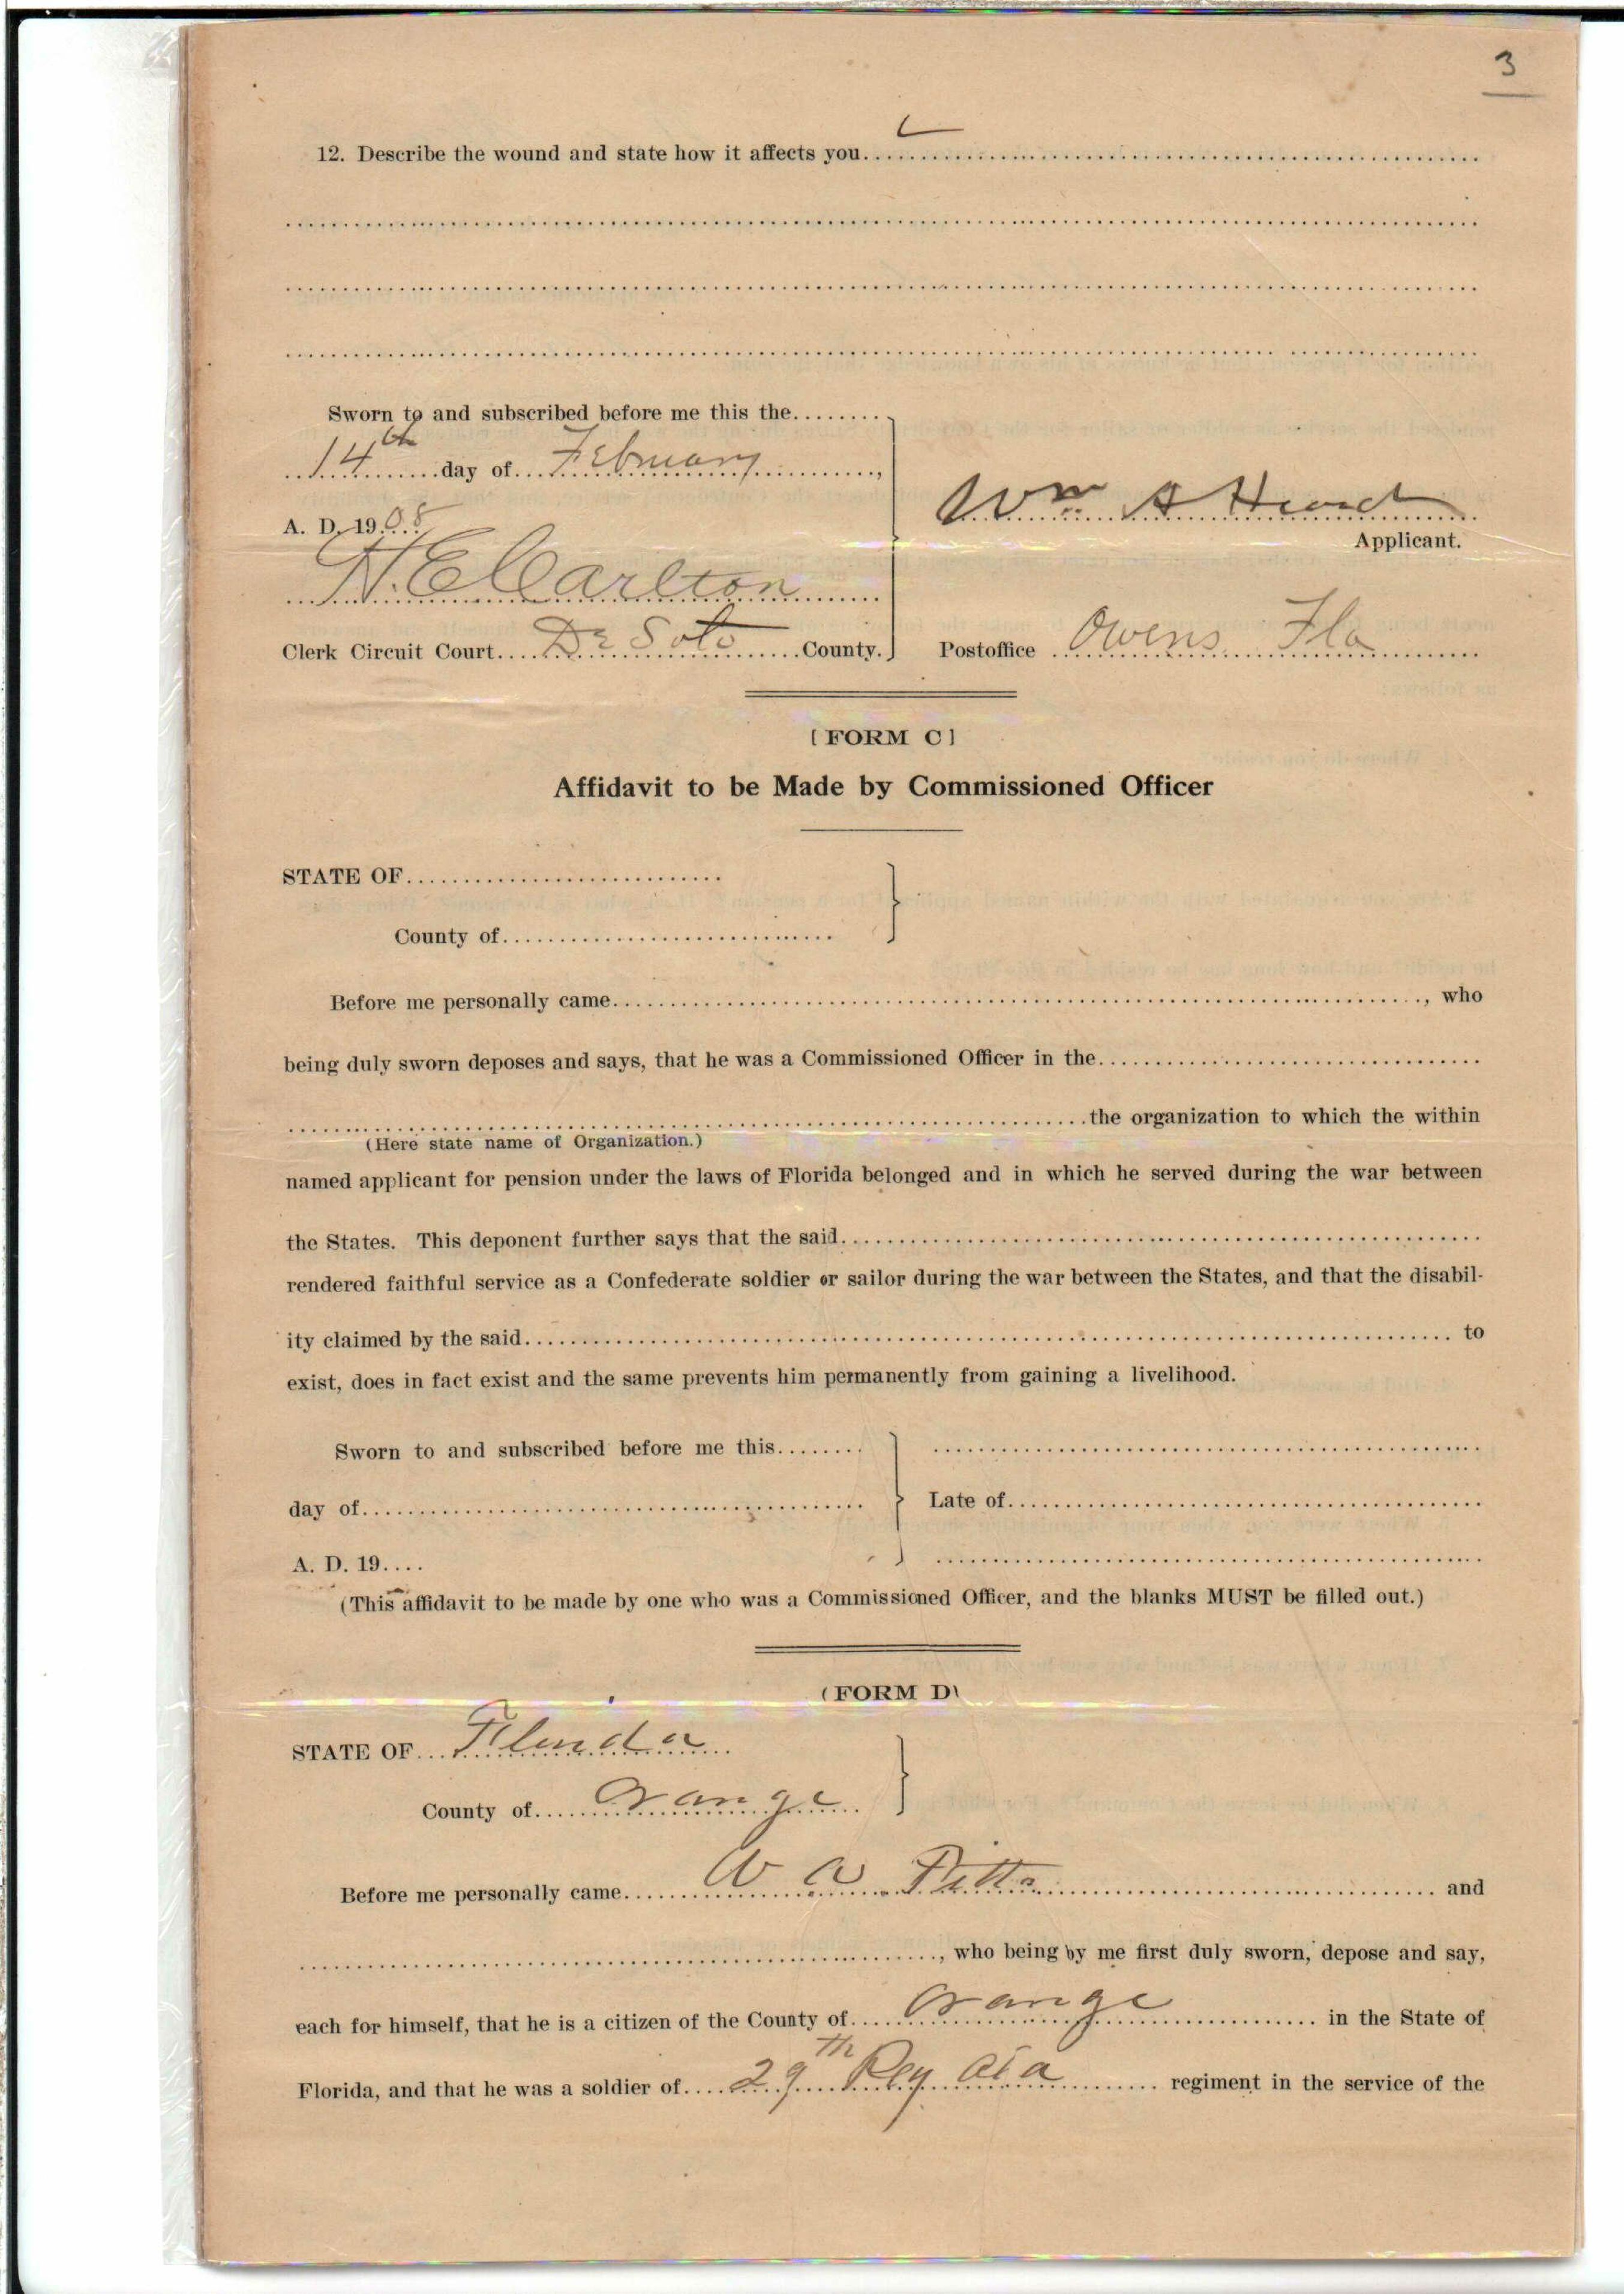 3
12. Describe the wound and state how it affects you
Sworn to and subscribed before me this the
14th day of February
A. D. 1908
N. E. Carlton
Clerk Circuit Court De Soto County.
Wm A
Applicant.
Postoffice Owens Fla
[FORM C]
Affidavit to be Made by Commissioned Officer
STATE OF
County of
Before me personally came, who
being duly sworn deposes and says, that he was a Commissioned Officer in the
the organization to which the within
(Here state name of Organization.)
named applicant for pension under the laws of Florida belonged and in which he served during the war between
the States. This deponent further says that the said
rendered faithful service as a Confederate soldier or sailor during the war between the States, and that the disabil-
ity claimed by the said to
exist, does in fact exist and the same prevents him permanently from gaining a livelihood.
Sworn to and subscribed before me this
day of
A. D. 19
Late of
(This affidavit to be made by one who was a Commissioned Officer, and the blanks MUST be filled out.)
(FORM D)
STATE OF Florida
County of Orange
Before me personally came W W and
, who being by me first duly sworn, depose and say,
each for himself, that he is a citizen of the County of Orange in the State of
Florida, and that he was a soldier of 29th Reg Ala regiment in the service of the